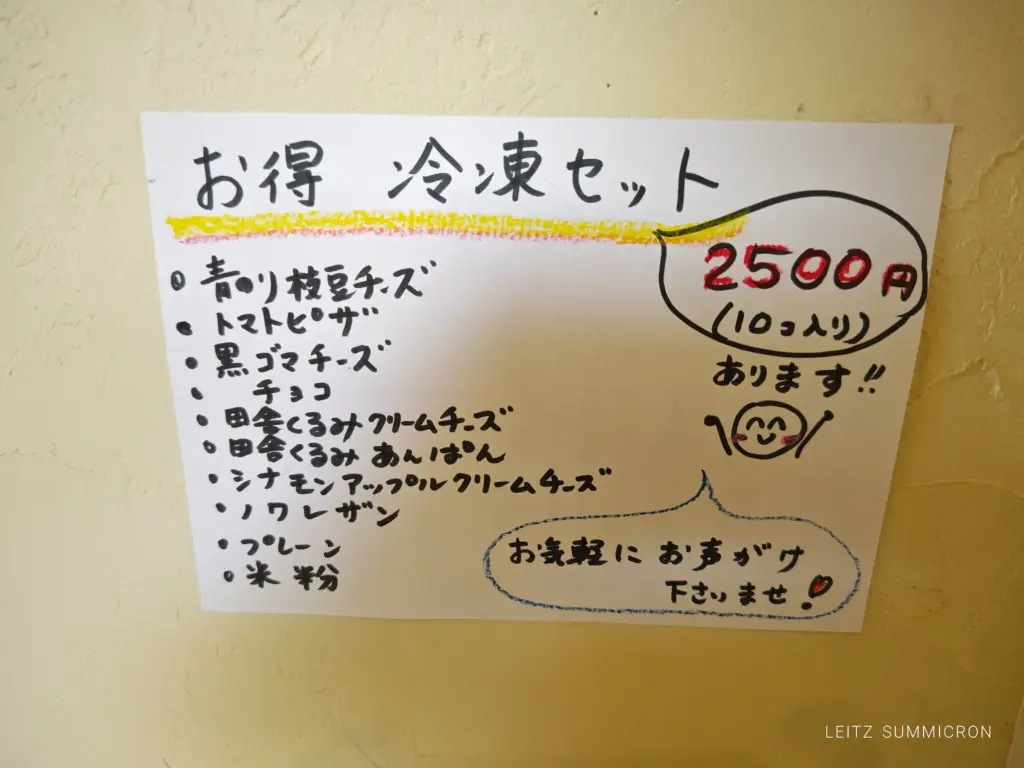 お得 冷凍セット
2500円
(10コ入り)
あります!!
• 青のり枝豆チーズ
• トマトピザ
• 黒ゴマチーズ
• チョコ
• 田舎くるみクリームチーズ
• 田舎くるみあんぱん
• シナモンアップルクリームチーズ
• ノワレザン
• プレーン
• 米粉
お気軽にお声がけ
下さいませ!
LEITZ SUMMICRON